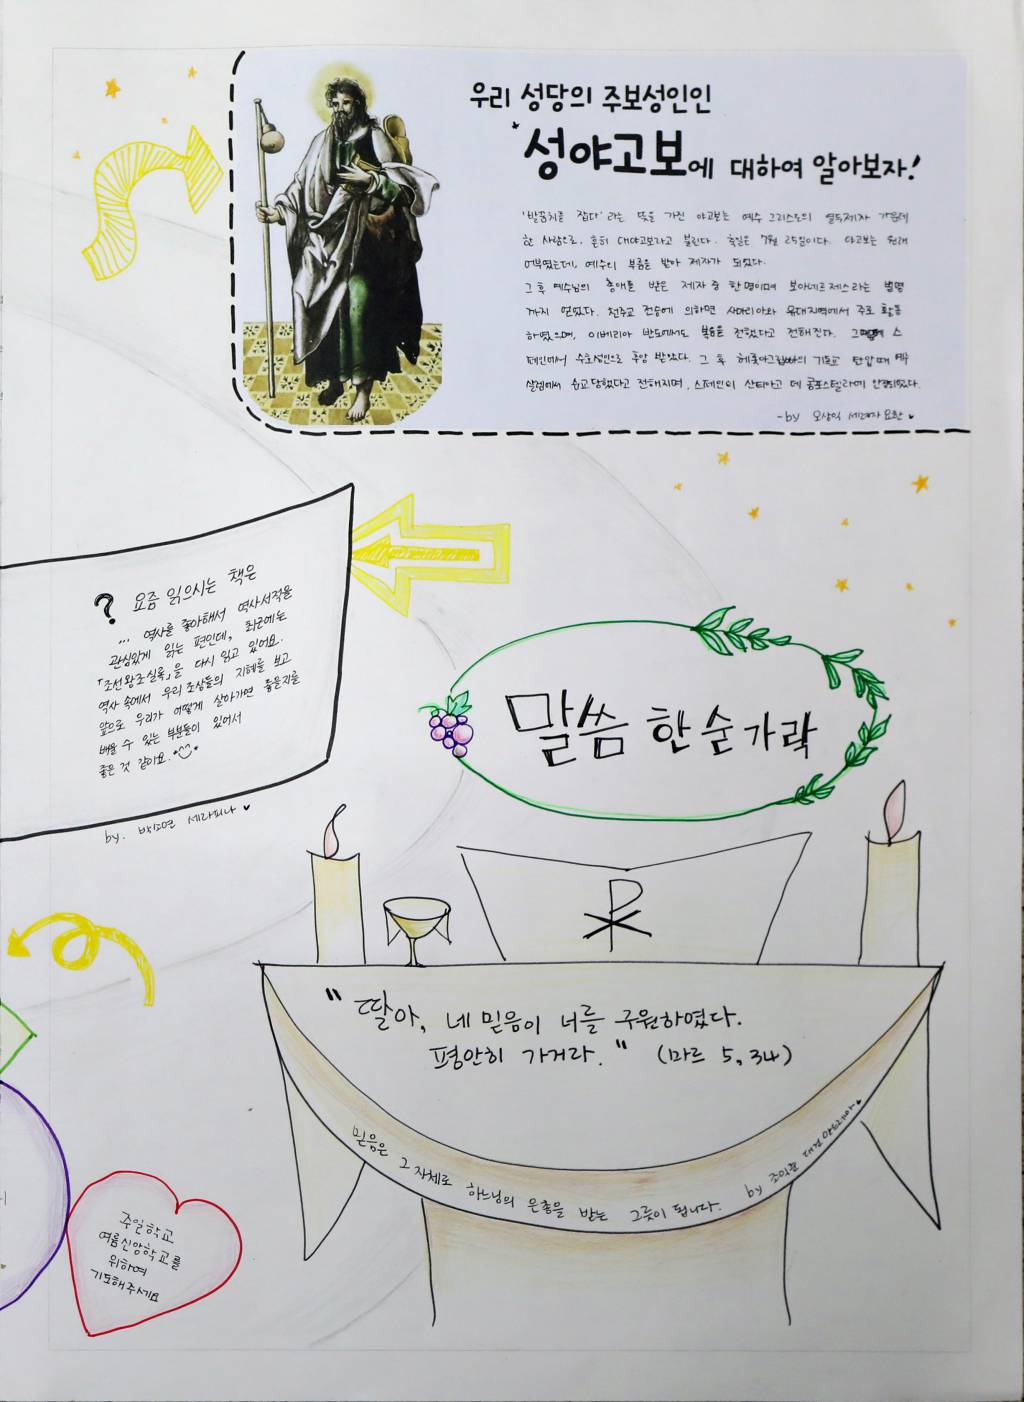 우리 성당의 주보성인인
성야고보에 대하여 알아보자!
'발꿈치를 잡다'라는 뜻을 가진 야고보는 예수 그리스도의 열두제자 가운데
한 사람으로, 흔히 대야고보라고 불린다. 축일은 7월 25일이다. 야고보는 원래
어부였는데, 예수의 부름을 받아 제자가 되었다.
그 후 예수님의 총애를 받은 제자 중 한 명이며 보아네르제스라는 별명
까지 얻었다. 천주교 전승에 의하면 사마리아와 유대지역에서 주로 활동
하였으며, 이베리아 반도에서도 복음을 전했다고 전해진다. 스
페인에서 수호성인으로 추앙 받았다. 그 후 탄압 때 예루
살렘에서 순교당했다고 전해지며, 스페인의 산티아고 데 콤포스텔라에 안장되었다.
-by 오상익 세례자 요한
? 요즘 읽으시는 책은
... 역사를 좋아해서 역사서적을
관심있게 읽는 편인데, 최근에는
「조선왕조실록」을 다시 읽고 있어요.
역사 속에서 우리 조상들의 지혜를 보고
앞으로 우리가 어떻게 살아가면 좋을지를
배울 수 있는 부분들이 있어서
좋은 것 같아요.
by. 박소연 세라피나
말씀 한 숟가락
"딸아, 네 믿음이 너를 구원하였다.
평안히 가거라." (마르 5,34)
믿음은 그 자체로 하느님의 은총을 받는 그릇이 됩니다.
by 조익훈 대건 안드레아
주일학교
여름신앙학교를
위하여
기도해주세요